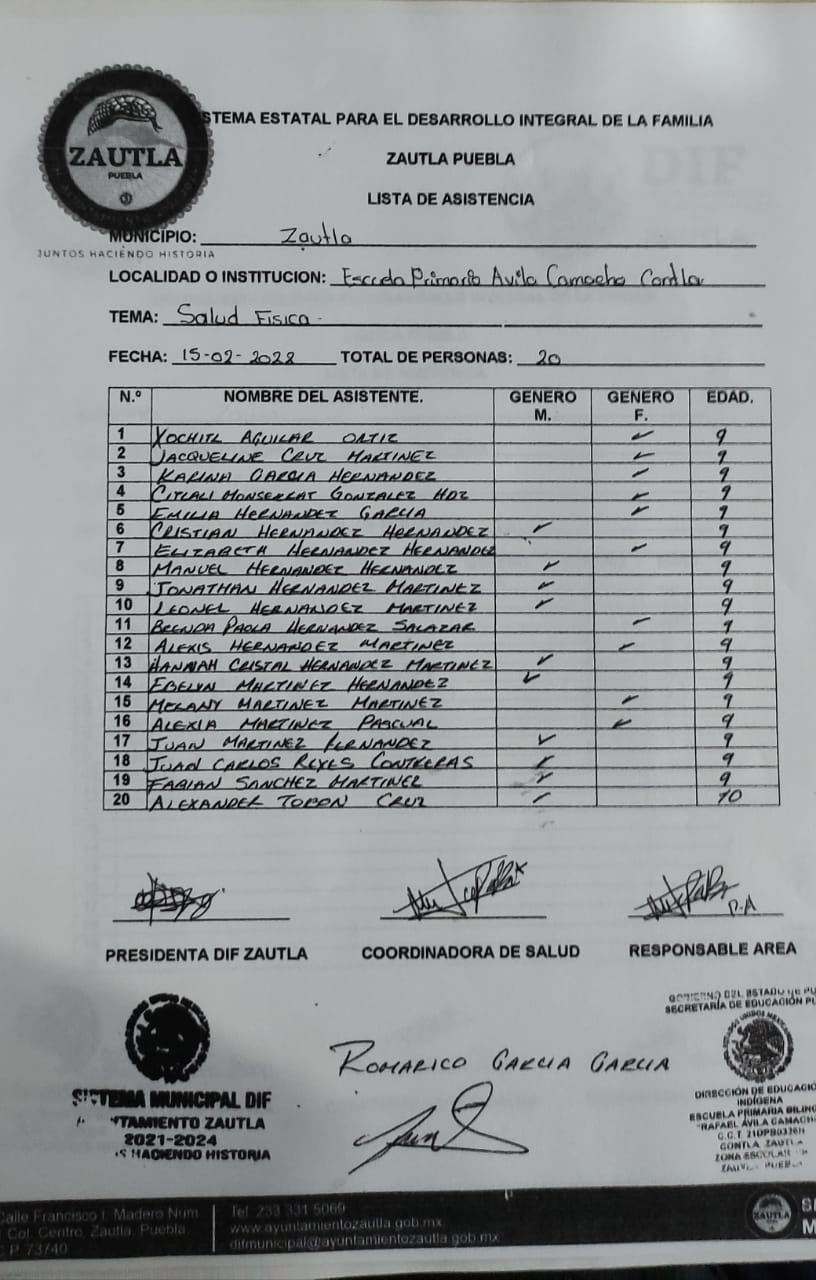 ZAUTLA
PUEBLA
JUNTOS HACIENDO HISTORIA
STEMA ESTATAL PARA EL DESARROLLO INTEGRAL DE LA FAMILIA
ZAUTLA PUEBLA
LISTA DE ASISTENCIA
MUNICIPIO: Zautla
LOCALIDAD O INSTITUCION: Escuela Primaria Avila Camacho Contla
TEMA: Salud Fisica.
FECHA: 15-02-2022 TOTAL DE PERSONAS: 20
N.º NOMBRE DEL ASISTENTE. GENERO M. GENERO F. EDAD.
1 XOCHITL AGUILAR ORTIZ ✓ 9
2 JACQUELINE CRUZ MARTINEZ ✓ 9
3 KARINA GARCIA HERNANDEZ ✓ 9
4 CITLALI MONSERRAT GONZALEZ HDZ ✓ 9
5 EMILIA HERNANDEZ GARCIA ✓ 9
6 CRISTIAN HERNANDEZ HERNANDEZ ✓ 9
7 ELIZABETH HERNANDEZ HERNANDEZ ✓ 9
8 MANUEL HERNANDEZ HERNANDEZ ✓ 9
9 JONATHAN HERNANDEZ MARTINEZ ✓ 9
10 LEONEL HERNANDEZ MARTINEZ ✓ 9
11 BRENDA PAOLA HERNANDEZ SALAZAR ✓ 9
12 ALEXIS HERNANDEZ MARTINEZ ✓ 9
13 HANNAH CRISTAL HERNANDEZ MARTINEZ ✓ 9
14 EBELYN MARTINEZ HERNANDEZ ✓ 9
15 MELANY MARTINEZ MARTINEZ ✓ 9
16 ALEXIA MARTINEZ PASCUAL ✓ 9
17 JUAN MARTINEZ FERNANDEZ ✓ 9
18 JUAN CARLOS REYES CONTRERAS ✓ 9
19 FABIAN SANCHEZ MARTINEZ ✓ 9
20 ALEXANDER TOBON CRUZ ✓ 10
P.A
PRESIDENTA DIF ZAUTLA COORDINADORA DE SALUD RESPONSABLE AREA
ROMARICO GARCIA GARCIA
SISTEMA MUNICIPAL DIF
NTAMIENTO ZAUTLA
2021-2024
S HACIENDO HISTORIA
GOBIERNO DEL ESTADO DE PU
SECRETARÍA DE EDUCACIÓN PU
ESTADOS UNIDOS MEXICANOS
DIRECCIÓN DE EDUCACIÓ
INDÍGENA
ESCUELA PRIMARIA BILING
"RAFAEL ÁVILA CAMACH
C.C.T.
CONTLA ZAUTLA
ZONA ESCOLAR
ZAUTLA PUEBLA
Calle Francisco I. Madero Num
Col. Centro, Zautla, Puebla.
C P 73740
Tel 233 331 5069
www.ayuntamientozautla.gob.mx
difmunicipal@ayuntamientozautla.gob.mx
ZAUTLA